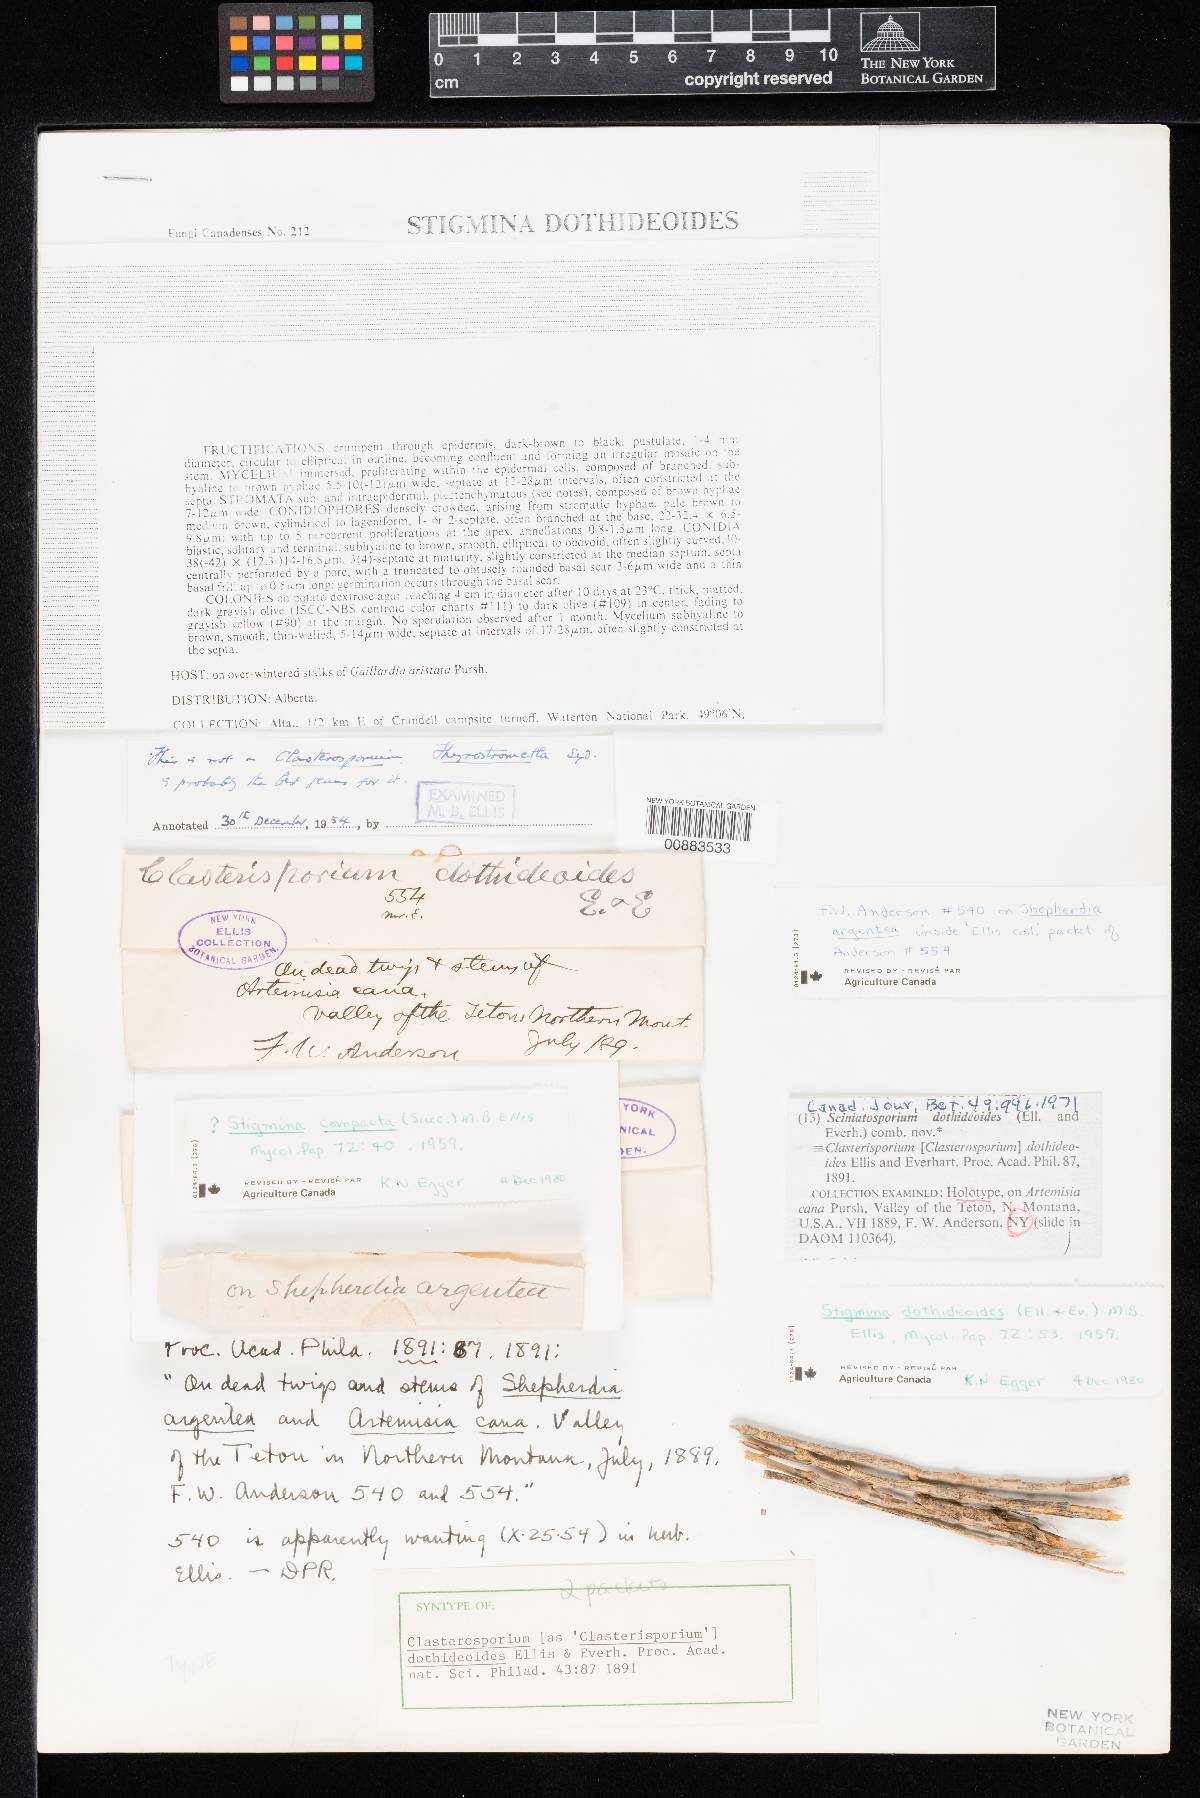 0 1 2 3 4 5 6 7 8 9 10
cm
copyright reserved
THE NEW YORK
BOTANICAL GARDEN
Fungi Canadenses No. 212
STIGMINA DOTHIDEOIDES
FRUCTIFICATIONS erumpent through epidermis, dark-brown to black, pustulate, 1-4 mm
diameter, circular to elliptical in outline, becoming confluent and forming an irregular mosaic on the
stem. MYCELIUM immersed, proliferating within the epidermal cells, composed of branched, sub-
hyaline to brown hyphae 5.5-10(-12)μm wide, septate at 12-28μm intervals, often constricted at the
septa. STROMATA sub- and intraepidermal, plectenchymatous (see notes), composed of brown hyphae
7-12μm wide. CONIDIOPHORES densely crowded, arising from stromatic hyphae, pale brown to
medium brown, cylindrical to lageniform, 1- or 2-septate, often branched at the base, 20-32.4 × 6.5-
9.8μm; with up to 5 percurrent proliferations at the apex, annellations 0.8-1.5μm long. CONIDIA
blastic, solitary and terminal, subhyaline to brown, smooth, elliptical to obovoid, often slightly curved, 30-
38(-42) × (12.3-)14-16.8μm, 3(4)-septate at maturity, slightly constricted at the median septum, septa
centrally perforated by a pore, with a truncated to obtusely rounded basal scar 3-6μm wide and a thin
basal frill up to 0.5μm long; germination occurs through the basal scar.
COLONIES on potato dextrose agar reaching 4 cm in diameter after 10 days at 23°C, thick, matted,
dark grayish olive (ISCC-NBS centroid color charts #111) to dark olive (#109) in center, fading to
grayish yellow (#90) at the margin. No sporulation observed after 1 month. Mycelium subhyaline to
brown, smooth, thin-walled, 5-14μm wide, septate at intervals of 17-28μm, often slightly constricted at
the septa.
HOST: on over-wintered stalks of Gaillardia aristata Pursh.
DISTRIBUTION: Alberta.
COLLECTION: Alta., 1/2 km E of Crandell campsite turnoff, Waterton National Park, 49°06'N,
This is not a Clasterosporium. Thyrostromella Syd.
is probably the best genus for it.
EXAMINED
M. B. ELLIS
Annotated 30th December, 1954, by
NEW YORK BOTANICAL GARDEN
00883533
Clasterisporium dothideoides
554
E. & E
NEW YORK
ELLIS
COLLECTION
BOTANICAL GARDEN.
On dead twigs & stems of
Artemisia cana.
Valley of the Teton, Northern Mont.
F. W. Anderson July 189.
F.W. Anderson #540 on Shepherdia
argentea inside 'Ellis coll.' packet of
Anderson # 554
REVISED BY - REVISÉ PAR
Agriculture Canada
? Stigmina compacta (Sacc.) M.B. Ellis
Mycol. Pap. 72:40, 1959.
REVISED BY - REVISÉ PAR
Agriculture Canada
K N Egger 4 Dec 1980
YORK
NICAL
DEN.
on Shepherdia argentea
Canad. Jour. Bot. 49.996.1971
(13) Sciniatosporium dothideoides (Ell. and
Everh.) comb. nov.*
≡ Clasterisporium [Clasterosporium] dothideo-
ides Ellis and Everhart. Proc. Acad. Phil. 87,
1891.
COLLECTION EXAMINED: Holotype, on Artemisia
cana Pursh, Valley of the Teton, N. Montana,
U.S.A., VII 1889, F. W. Anderson, NY (slide in
DAOM 110364).
Stigmina dothideoides (Ell. & Ev.) M.B.
Ellis, Mycol. Pap. 72:53, 1959.
REVISED BY - REVISÉ PAR
Agriculture Canada
K.N Egger 4 Dec 1980
Proc. Acad. Phila. 1891: 87. 1891:
"On dead twigs and stems of Shepherdia
argentea and Artemisia cana. Valley
of the Teton in Northern Montana, July, 1889.
F. W. Anderson 540 and 554."
540 is apparently wanting (X.25.54) in herb.
Ellis. — DPR.
2 packets
SYNTYPE OF:
Clasterosporium [as 'Clasterisporium']
dothideoides Ellis & Everh. Proc. Acad.
nat. Sci. Philad. 43:87 1891
TYPE
NEW YORK
BOTANICAL
GARDEN